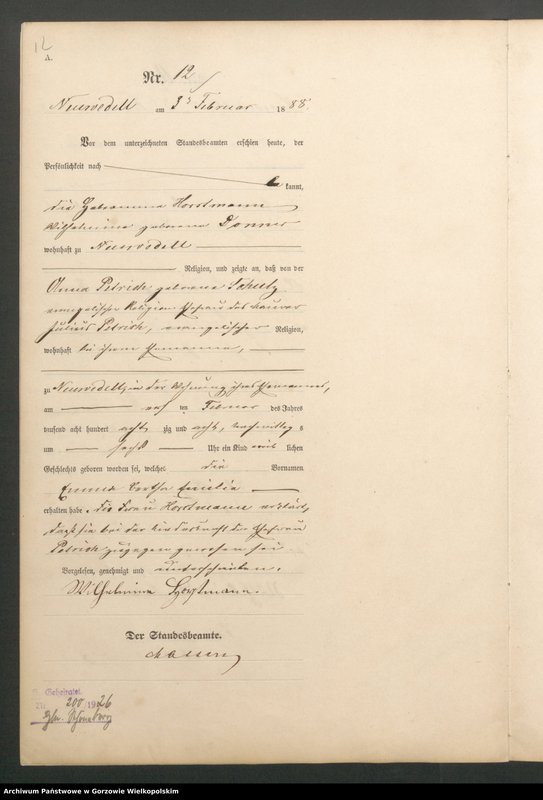 12
A.
Nr. 12
Neuwedell am 3ten Februar 1888.
Vor dem unterzeichneten Standesbeamten erschien heute, der
Persönlichkeit nach
be kannt,
die Hebamme Horstmann
Wilhelmine geborene Donner
wohnhaft zu Neuwedell
Religion, und zeigte an, daß von der
Anna Petrick geborene Schulz
evangelischer Religion Ehefrau des Maurer
Julius Petrick, evangelischer Religion,
wohnhaft bei ihrem Ehemanne,
zu Neuwedell, in der Wohnung ihres Ehemannes,
am ten Februar des Jahres
tausend acht hundert acht zig und acht, Nachmittag s
um sechs Uhr ein Kind weib lichen
Geschlechts geboren worden sei, welches die Vornamen
Bertha Emilie
erhalten habe. Die Frau Horstmann erklärt,
daß sie bei der Niederkunft der Ehefrau
Petrick zugegen gewesen sei.
Vorgelesen, genehmigt und unterschrieben.
Wilhelmine Horstmann.
Der Standesbeamte.
Geheiratet
200/1926
Schöneberg
Archiwum Państwowe w Gorzowie Wielkopolskim